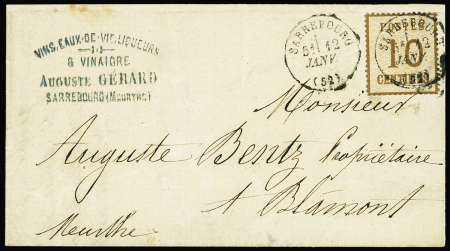 VINS, EAUX-DE-VIE, LIQUEURS
& VINAIGRE
AUGUSTE GÉRARD
SARREBOURG (MEURTHE)
SARREBOURG
5E 12
JANV
(52)
POSTES
10
CENTIMES
SARREBOURG
12
JANV
(52)
Monsieur
Auguste Bentz Propriétaire
A Blamont
Meurthe